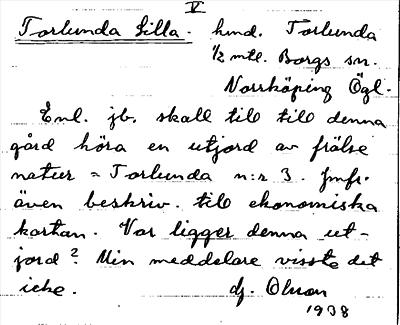 V
Torlunda Lilla. hmd. Torlunda
1/2 mtl. Borgs sn.
Norrköping Ögl.
Enl. jb. skall till till denna
gård höra en utjord av frälse
natur = Torlunda n:r 3. Jmfr.
även beskriv. till ekonomiska
kartan. Var ligger denna ut-
jord? Min meddelare visste det
icke. dj. Olsson
1938